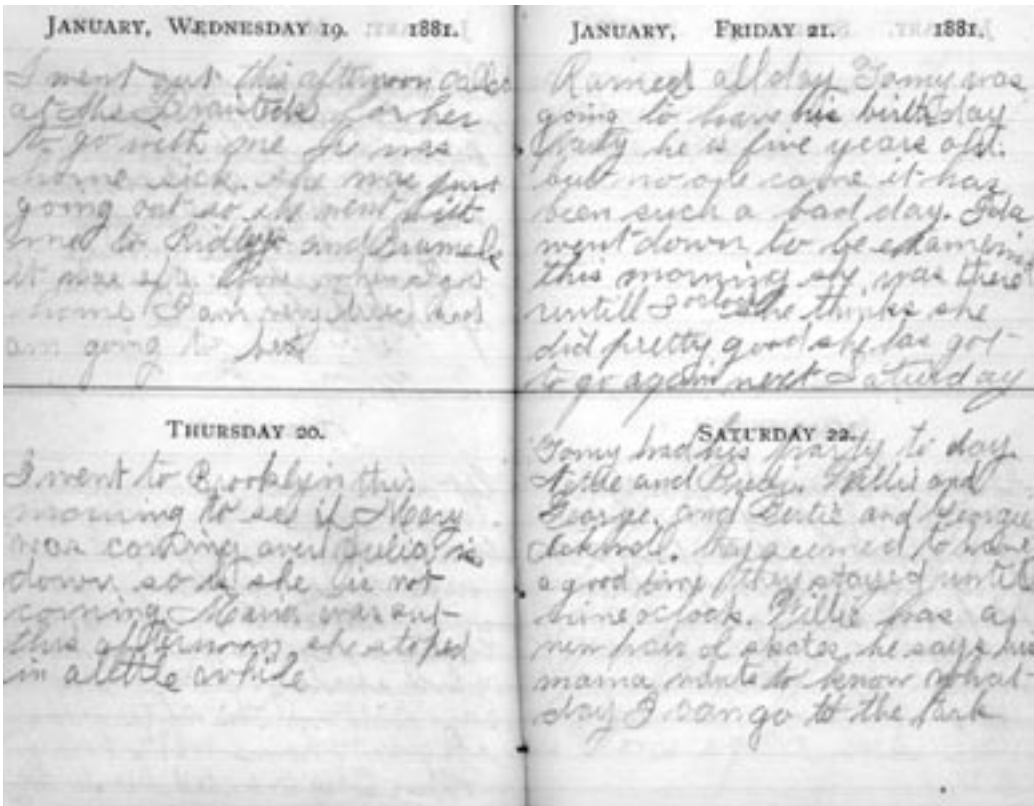 JANUARY, WEDNESDAY 19. 1881.
I went out this afternoon called
at Mrs for her
to go with me he was
home sick. she was just
going out so she went with
me to Ridleys and
it was six when I got
home I am very tired and
am going to bed
THURSDAY 20.
I went to Brooklyn this
morning to see if Mary
was coming over Julia is
down so she is not
coming Mama was out
this afternoon she stoped
in a little while
JANUARY, FRIDAY 21. 1881.
Rained all day Tomy was
going to have his birthday
party he is five years old.
but no one came it has
been such a bad day.
went down to be examend
this morning she was there
untill oclock she thinks she
did pretty good she has got
to go again next Saturday
SATURDAY 22.
Tomy had his party to day
Nettie and Willie and
George, and Gertie and Georgie
they seemed to have
a good time they stayed until
nine oclock. Willie has a
new pair of skates, he says his
mama wants to know what
day I can go to the Park